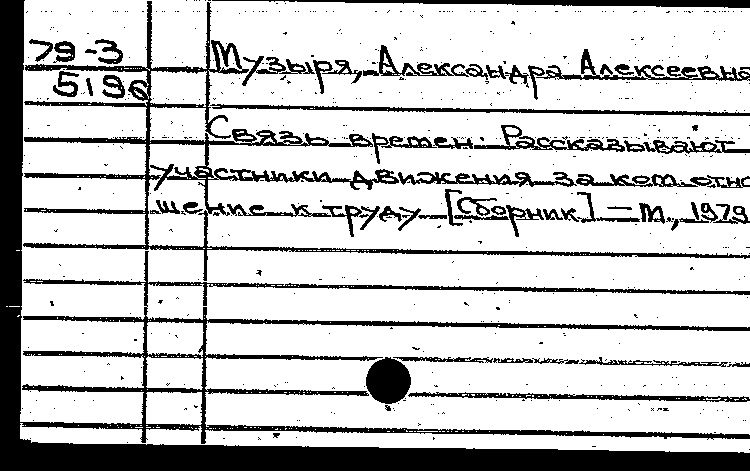 79-3
5196
Музыря, Александра Алексеевна
Связь времен. Рассказывают
участники движения за ком. отно
шение к труду [Сборник] — М, 1979